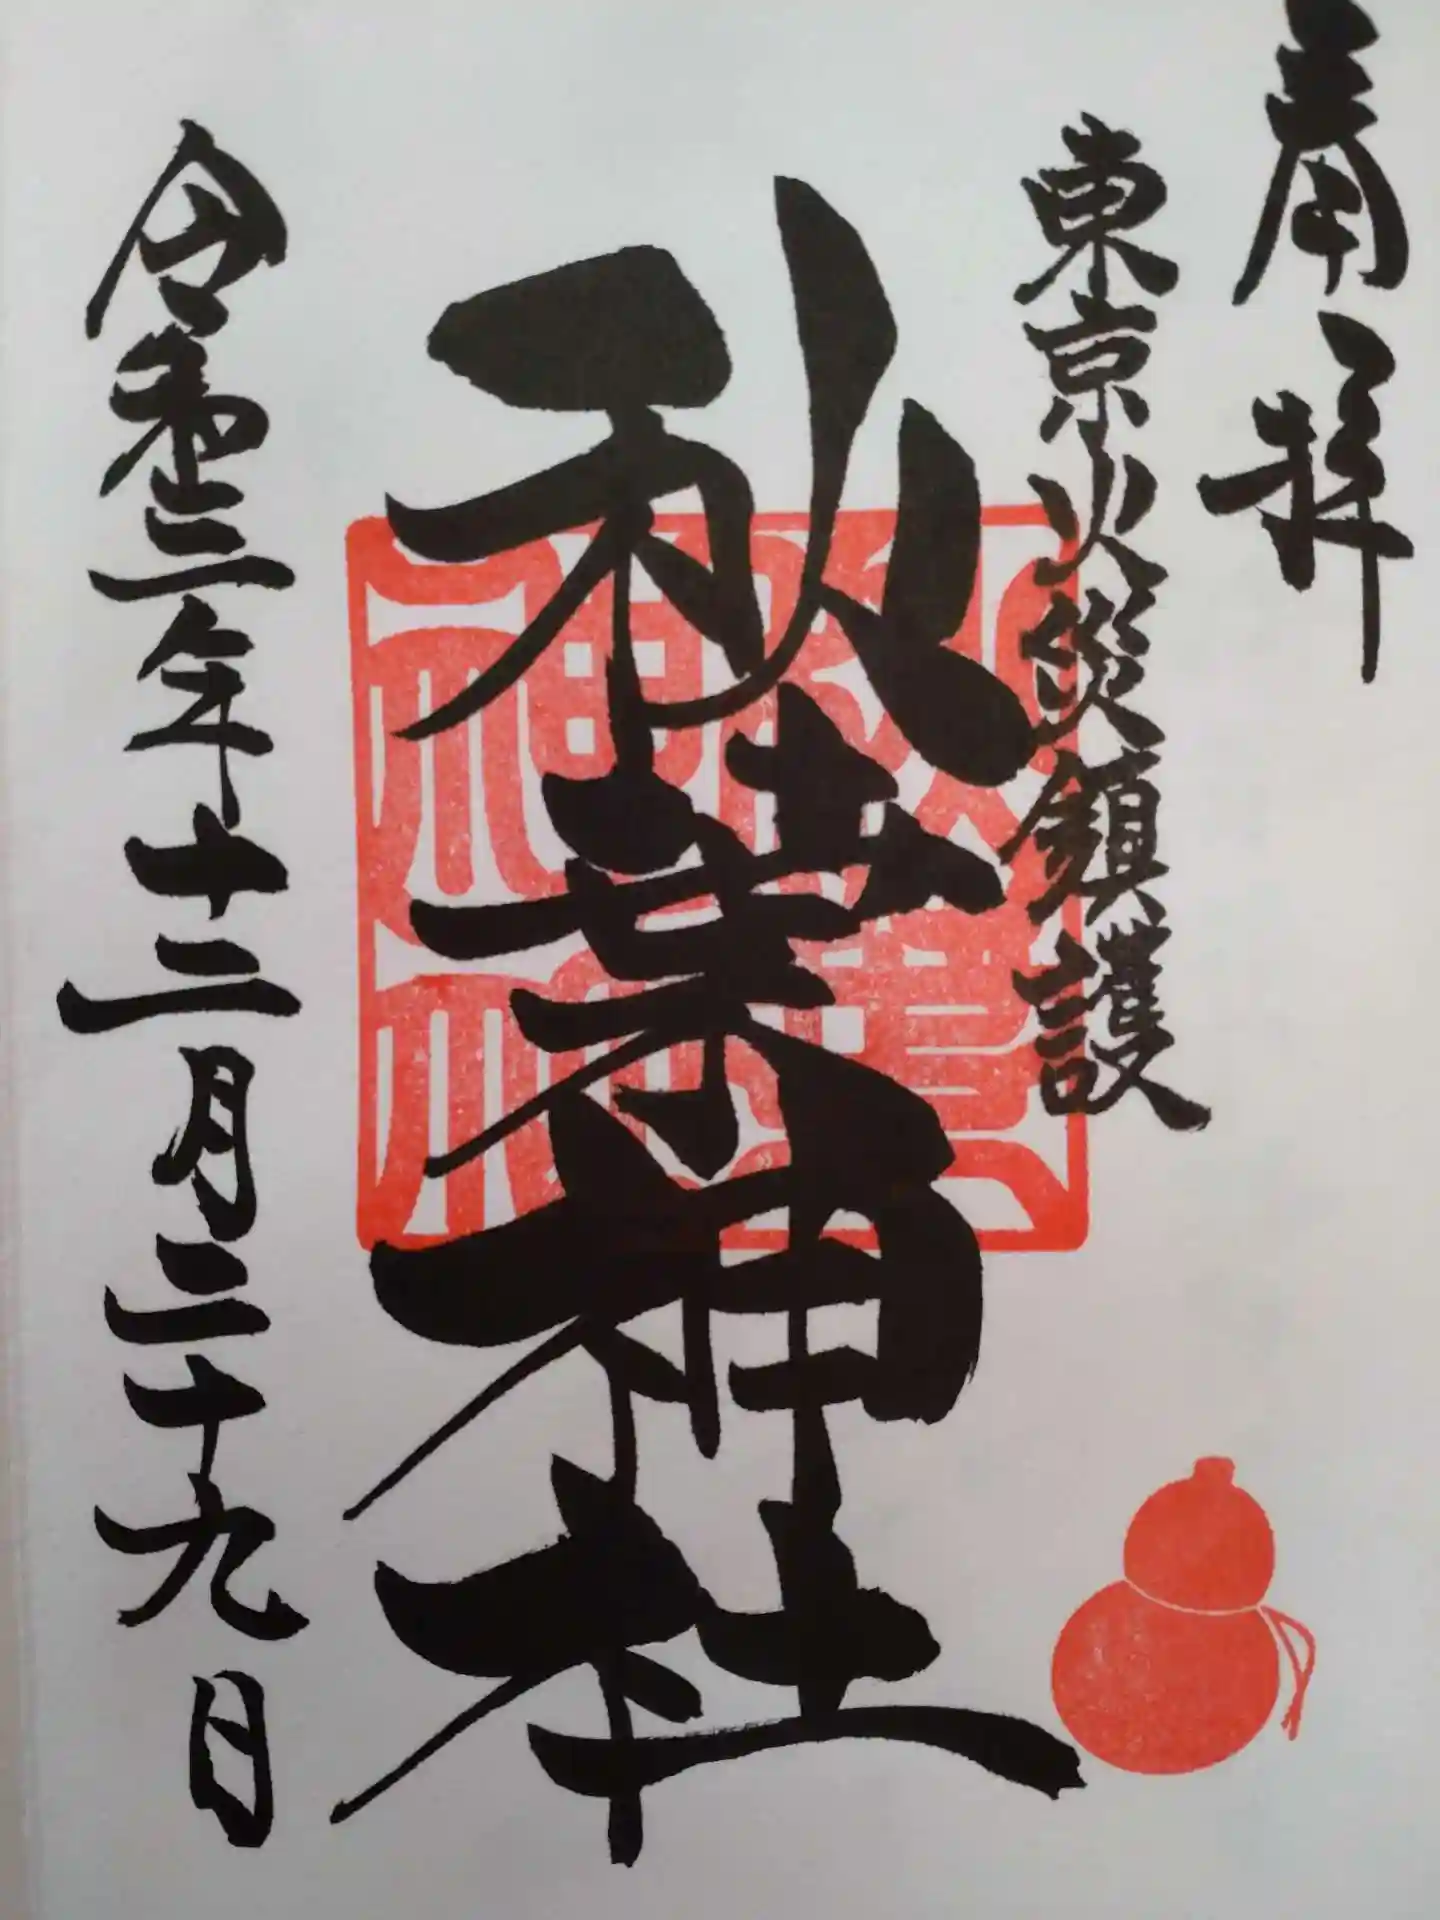 奉拝
東京火災鎮護
秋葉神社
秋葉神社
令和三年十二月二十九日